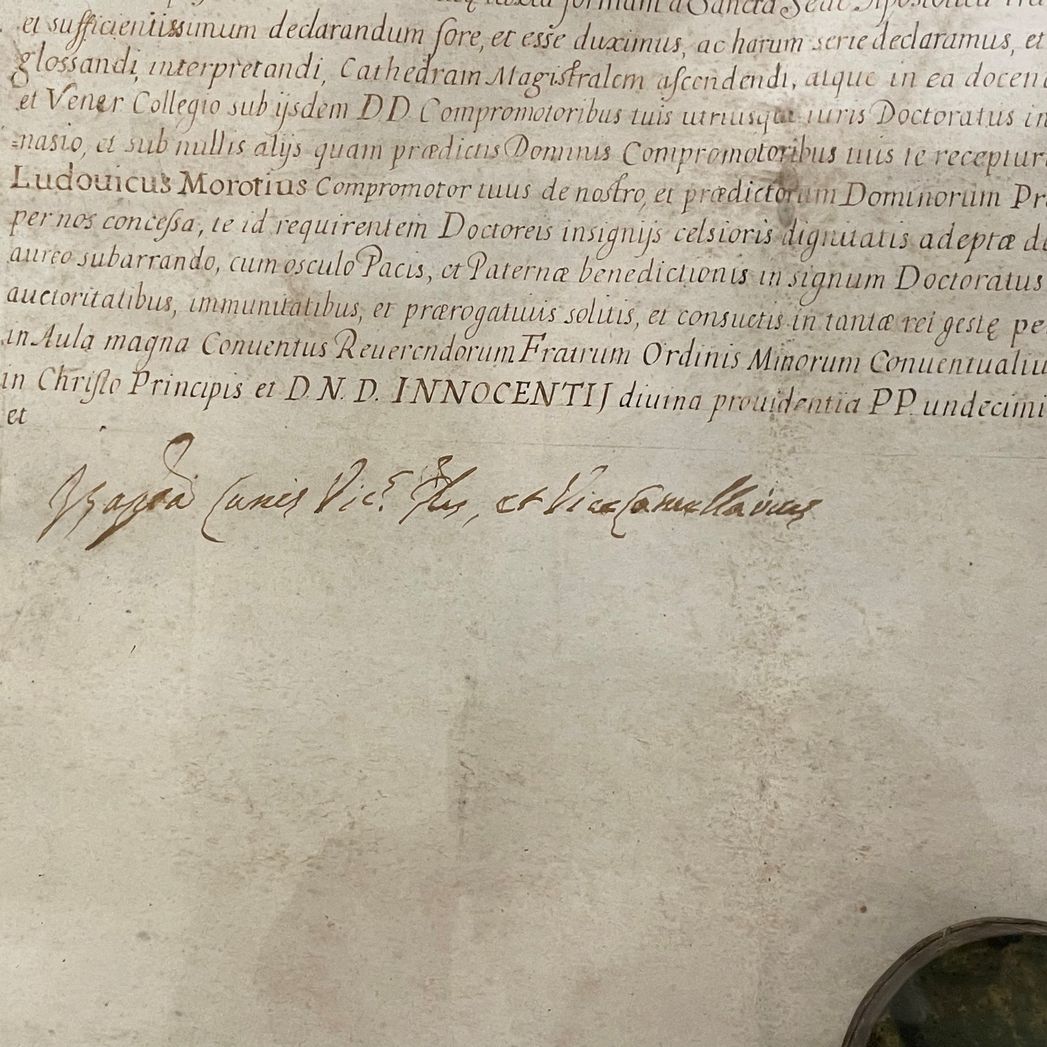 iuxta formam a Sancta Sede Apostolica
et sufficientissimum declarandum fore, et esse duximus, ac harum serie declaramus, et
glossandi, interpretandi, Cathedram Magistralem ascendendi, atque in ea docen
et Vener Collegio sub ijsdem D D Compromotoribus tuis utriusque iuris Doctoratus in
nasio, et sub nullis alijs quam prædictis Dominis Compromotoribus tuis te recepturi
Ludouicus Morotius Compromotor tuus de nostro, et prædictorum Dominorum Pr
per nos concessa, te id requirentem Doctoreis insignijs celsioris dignitatis adeptæ de
aureo subarrando, cum osculo Pacis, et Paternæ benedictionis in signum Doctoratus
auctoritatibus, immunitatibus, et prærogatiuis solitis, et consuetis in tantæ rei gestę pe
in Aula magna Conuentus Reuerendorum Fratrum Ordinis Minorum Conuentualiu
in Christo Principis et D. N. D. INNOCENTIJ diuina prouidentia PP. undecimi
et
Vic.s et ViceCancellarius